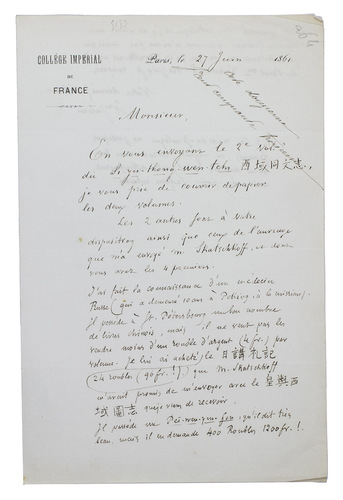 COLLÉGE IMPÉRIAL
DE
FRANCE
Paris, le 27 Juin 1861
Monsieur,
En vous envoyant le 2e volume
du Si-yu-thong-wen-tchi 西域同文志,
je vous prie de couvrir de papier
les deux volumes.
Les 2 autres sont à votre
disposition ainsi que ceux de l'
que m'a envoyé M. Skatschkoff, et dont
vous avez les 4 premiers.
J'ai fait la connaissance d'un médecin
Russe (qui a demeuré 10 ans à Péking, à la mission)
il possède à St. Pétersbourg un bon nombre
de livres chinois, mais il ne veut pas les
vendre moins d'un rouble d'argent (4 fr.) par
volume. Je lui ai acheté le 日講礼記
(24 roubles (90 fr. !)) que M. Skatschkoff
m'avait promis de m'envoyer avec le 皇輿西
域圖志 que je viens de recevoir.
Il possède un qu'il dit très
beau, mais il en demande 400 Roubles 1200 fr. !.